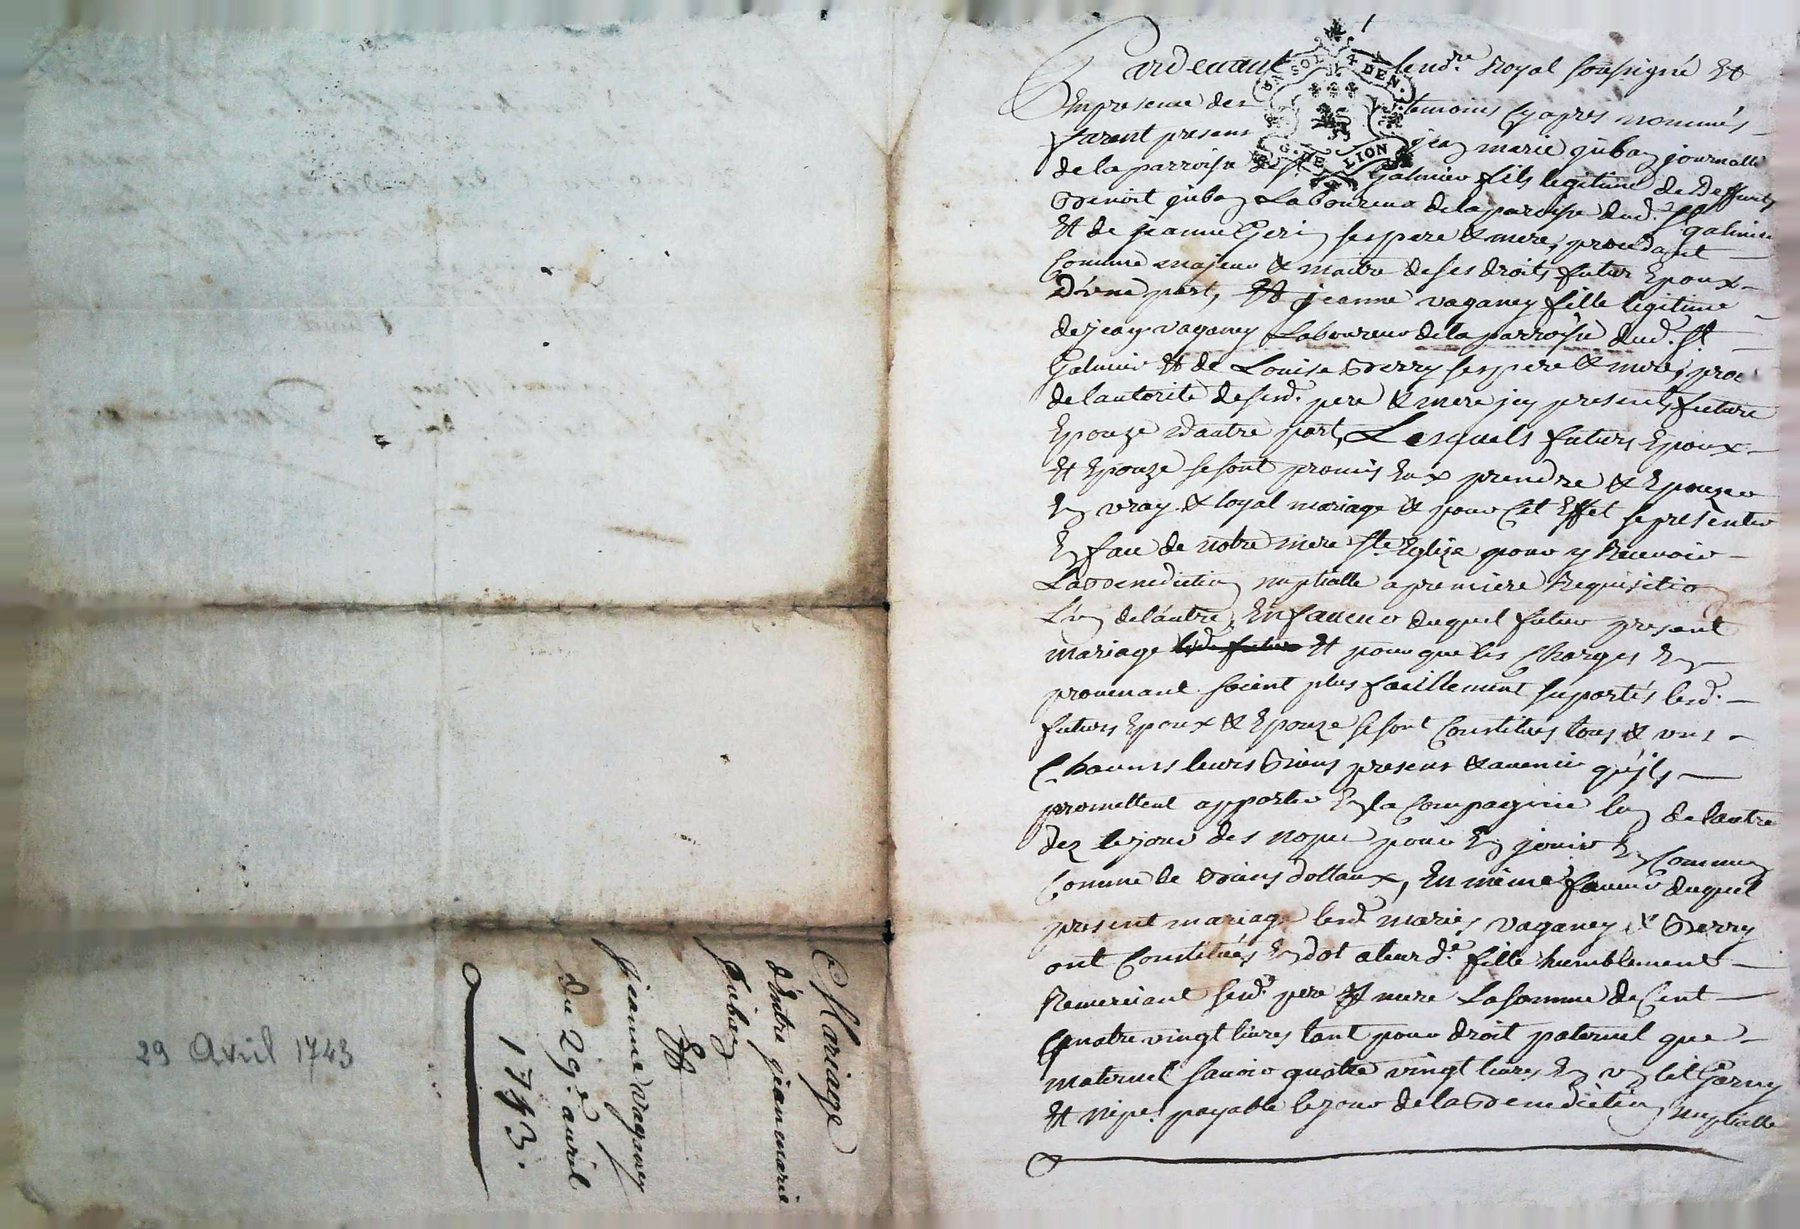 Mariage
d'entre jean marie
Juban
Et
jeanne Vaganey
du 29e. avril
1743.
29 Avril 1743
UN SOL 4 DEN.
G. DE LION
Pardevant le nore. Royal soussigné Et
En presence des temoins cy apres nommés
furent presens jean marie juban journallie
de la parroisse de st Galmier fils legitime de deffunts
Benoit juban Laboureur de la paroisse dud. st galmier
Et de jeanne Geri ses pere & mere, procedant
Comme majeur & maitre de ses droits futur Epoux
D'une part, Et jeanne vaganey fille legitime
de jean vaganey Laboureur de la parroisse dud. st.
Galmier Et de Louise Berry ses pere & mere, proc
de l'autorité de sesd. pere & mere icy presents, future
Epouze d'autre part, Lesquels futurs Epoux
Et Epouze se sont promis Eux prendre & Epouzer
En vray & loyal mariage & pour Cet Effet se présenter
En face de notre mere ste Eglize pour y Recevoir
La Benediction nuptialle a premiere Requisition
L'un de l'autre, En faveur duquel futur present
mariage Et pour que les Charges En
provenant soient plus facillement suportés lesd.
futurs Epoux & Epouze se sont Constitués tous & uns
Chacuns leurs Biens presens & avenir qu'ils
promettent apporter En la Compagnie l'un de l'autre
dez le jour des nopces pour En jouir En Commun
Comme de Biens dottaux, En même faveur duquel
present mariage lesd. mariés vaganey & Berry
ont Constitués En dot a leurde. fille humblement
Remerciant sesd. pere & mere La somme de Cent
Quatre vingt livres tant pour droit paternel que
maternel savoir quatre vingt livres En un lit Garny
Et nipes payable le jour de la Benediction nuptialle